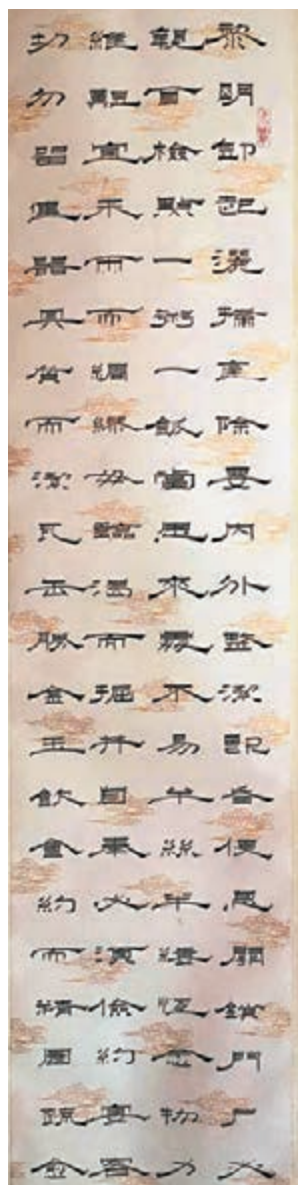 黎明即起灑掃庭除要内外整潔既昏便息關鎖門户必
親自檢點一粥一飯當思來處不易半絲半縷恒念物力
維艱宜未雨而綢繆毋臨渴而掘井自奉必須儉約宴客
切勿留連器具質而潔瓦缶勝金玉飲食約而精園蔬愈